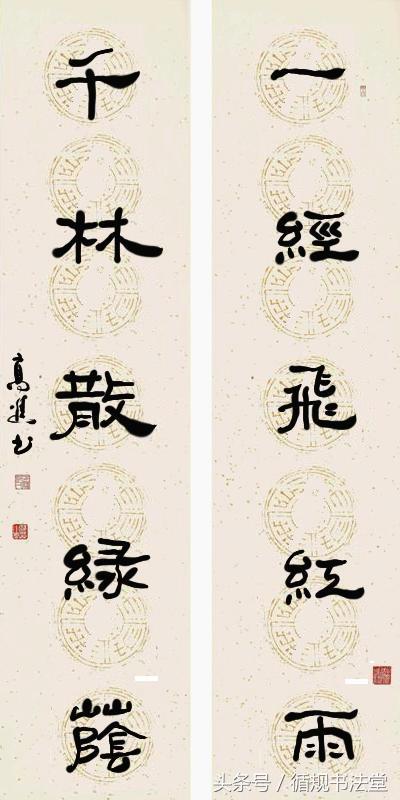 一經飛紅雨
千林散緑蔭
高书
头条号 / 循规书法堂